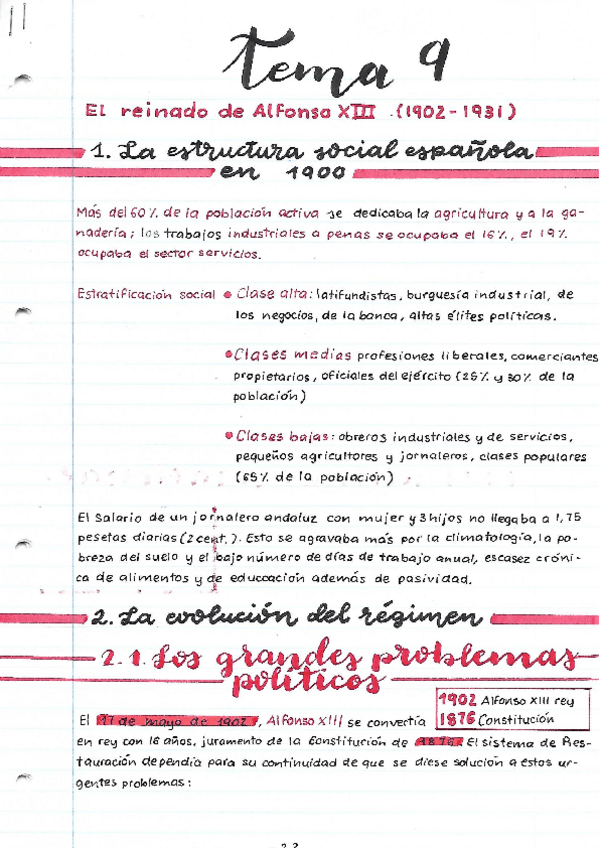 Tema 9
El reinado de Alfonso XIII (1902-1931)
1. La estructura social española
en 1900
Más del 60% de la población activa se dedicaba la agricultura y a la ga-
nadería; los trabajos industriales a penas se ocupaba el 16%, el 19%
ocupaba el sector servicios.
Estratificación social • Clase alta: latifundistas, burguesía industrial, de
los negocios, de la banca, altas élites políticas.
• Clases medias profesiones liberales, comerciantes
propietarios, oficiales del ejército (25% y 30% de la
población)
• Clases bajas: obreros industriales y de servicios,
pequeños agricultores y jornaleros, clases populares
(65% de la población)
El Salario de un jornalero andaluz con mujer y 3 hijos no llegaba a 1,75
pesetas diarias (2 cent.). Esto se agravaba más por la climatología, la po-
breza del suelo y el bajo número de días de trabajo anual, escasez cróni-
ca de alimentos y de educcación además de pasividad.
2. La evolución del régimen
2.1. Los grandes problemas
políticos
1902 Alfonso XIII rey
1876 Constitución
El 17 de mayo de 1902, Alfonso XIII se convertía
en rey con 16 años, juramento de la Constitución de 1876. El sistema de Res-
tauración dependía para su continuidad de que se diese solución a estos ur-
gentes problemas: